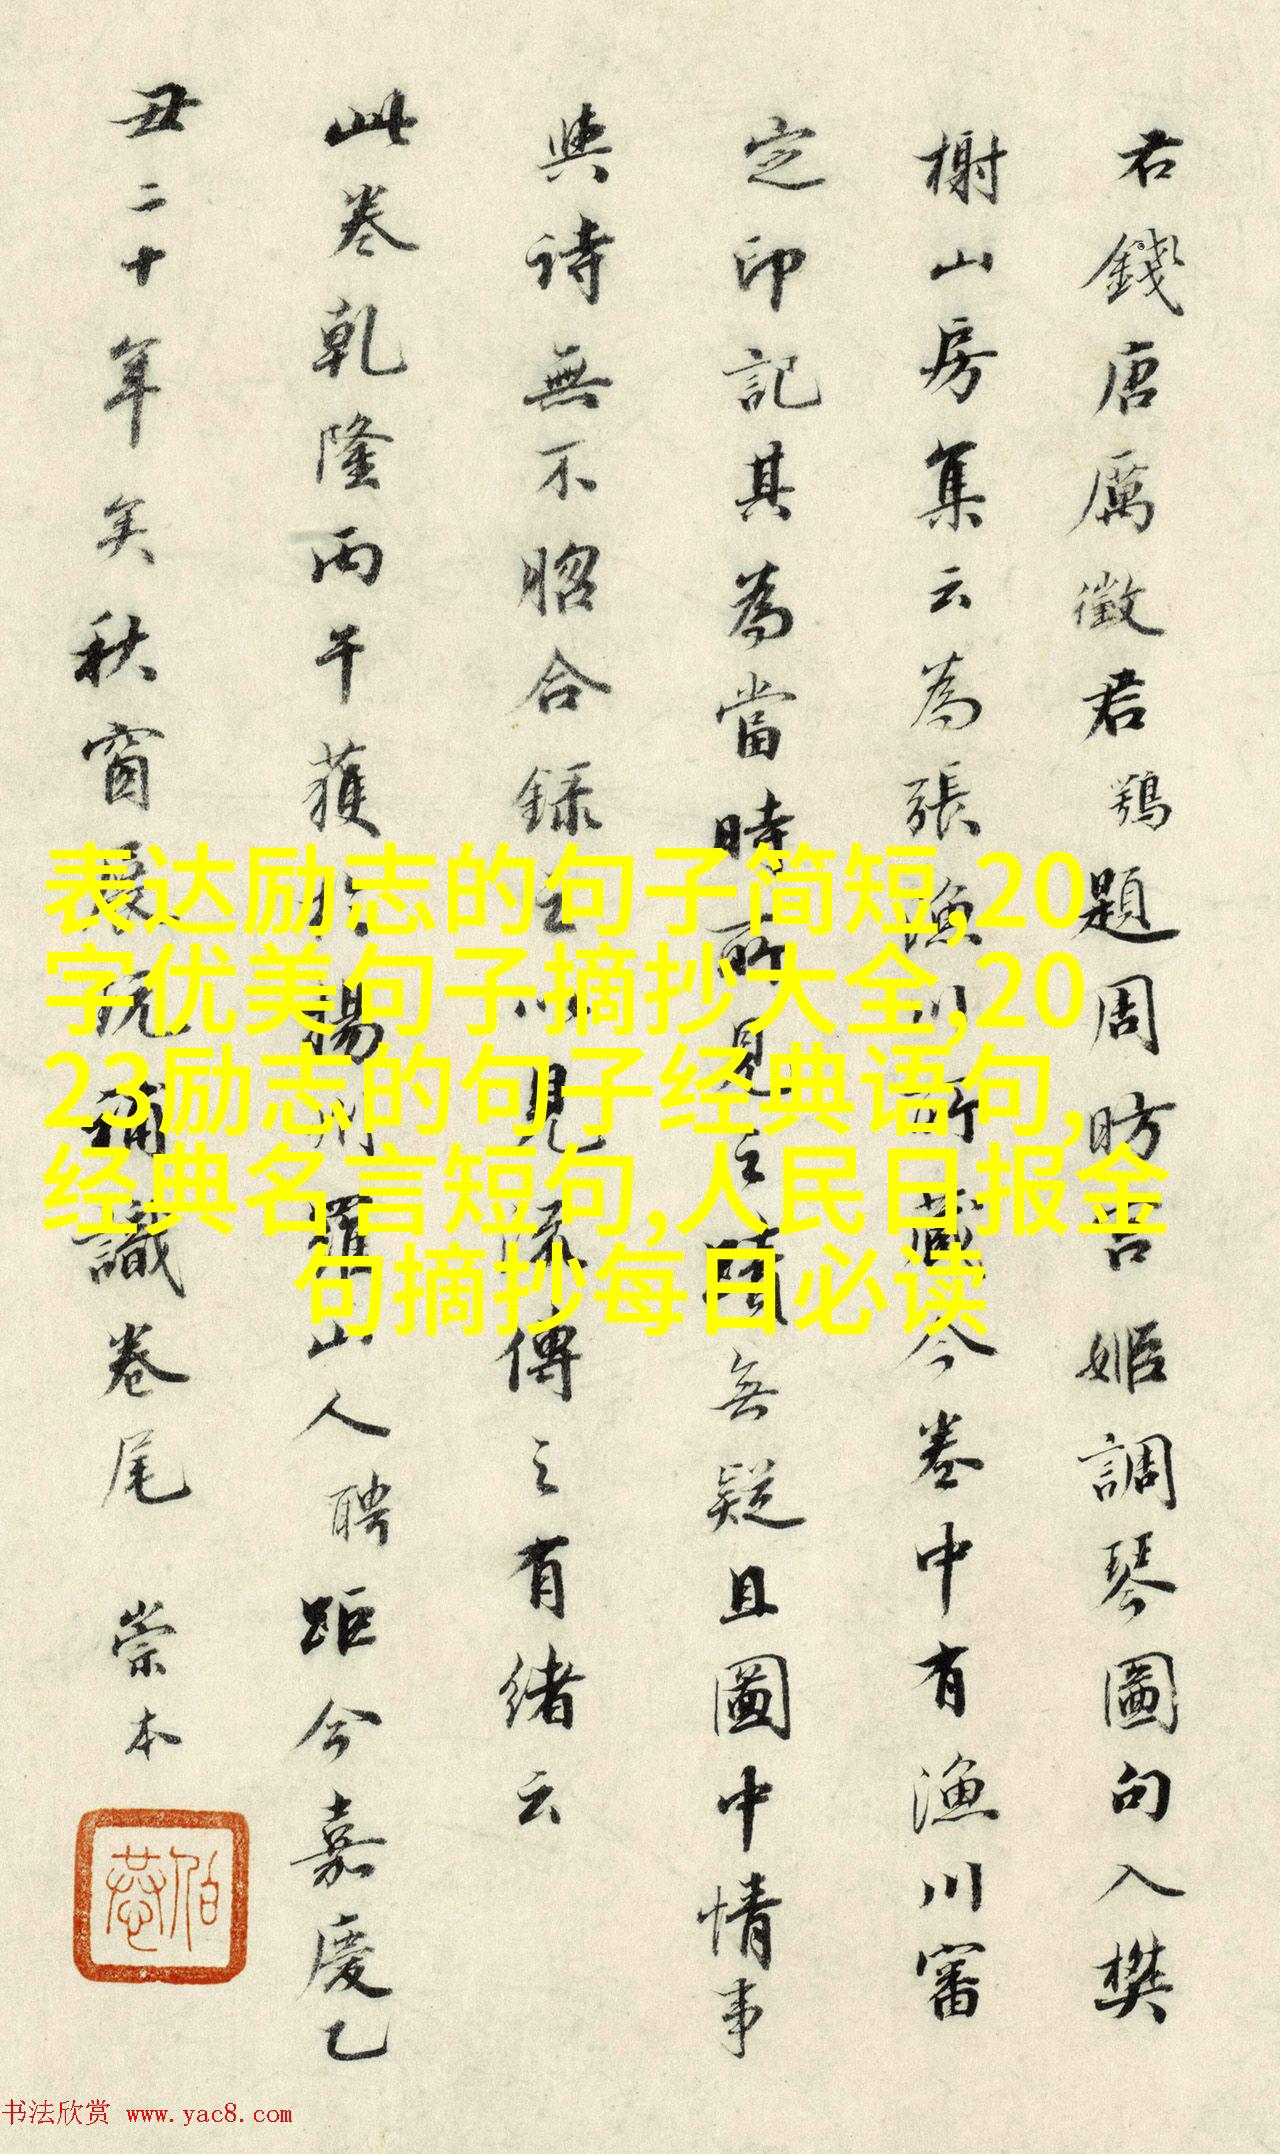 君錢唐厲徵君鶚題周昉吉姬調琴圖句入樊
榭山房集云為張漁川所藏今卷中有漁川審
定印記其為當時所見之蹟無疑且圖中情事
與詩無不昭合錄之以見流傳之有緒云
此卷乾隆丙午獲於揚州羅山人聘距今嘉慶乙
丑二十年矣秋窗展玩補識卷尾 崇本
表达励志的句子简短,20
字优美句子摘抄大全,20
23励志的句子经典语句,
经典名言短句,人民日报金
句摘抄每日必读
书法欣赏 www.yac8.com